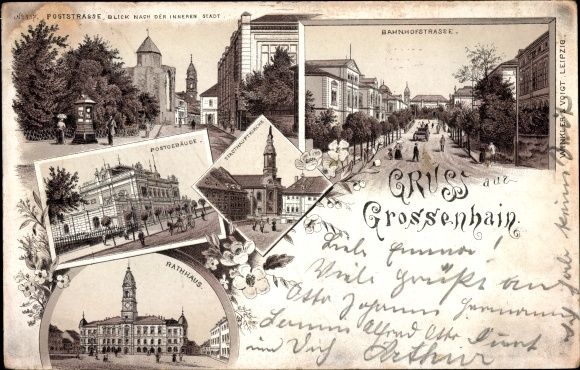 POSTSTRASSE, BLICK NACH DER INNEREN STADT.
BAHNHOFSTRASSE.
POSTGEBÄUDE.
STADTHAUPTKIRCHE
RATHHAUS.
GRUSS aus
Grossenhain.
VOIGT, LEIPZIG.
Liebe Emma!
Viele Grüße an
Otto Johanna Hermann
Alfred Otto
und Dich Arthur